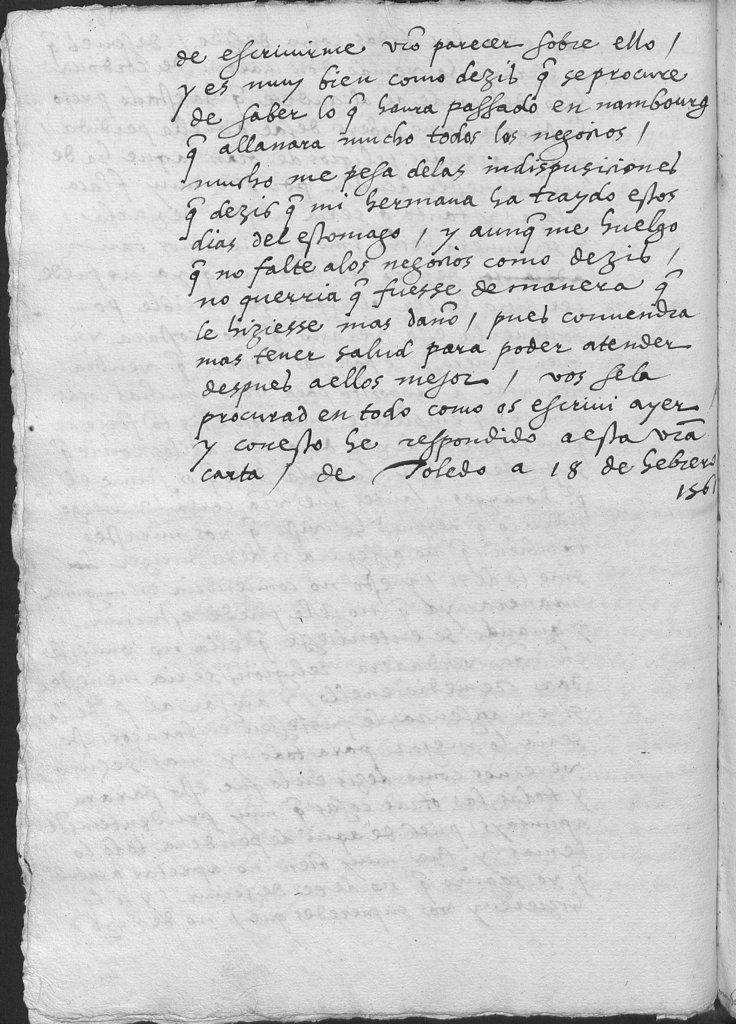 de escriuirme vr̃o parecer sobre ello /
y es muy bien como dezis q̃ se procure
de saber lo q̃ haura passado en nambourg
q̃ allanara mucho todos los negocios /
mucho me pesa delas indisposiciones
q̃ dezis q̃ mi hermana ha traydo estos
dias del estomago / y aunq̃ me huelgo
q̃ no falte alos negocios como dezis /
no querria q̃ fuesse de manera q̃
le hiziesse mas daño / pues conuendra
mas tener salud para poder atender
despues aellos mejor / vos sela
procurad en todo como os escriui ayer
y conesto he respondido aesta vr̃a
carta / de Toledo a 18 de hebrero
1561